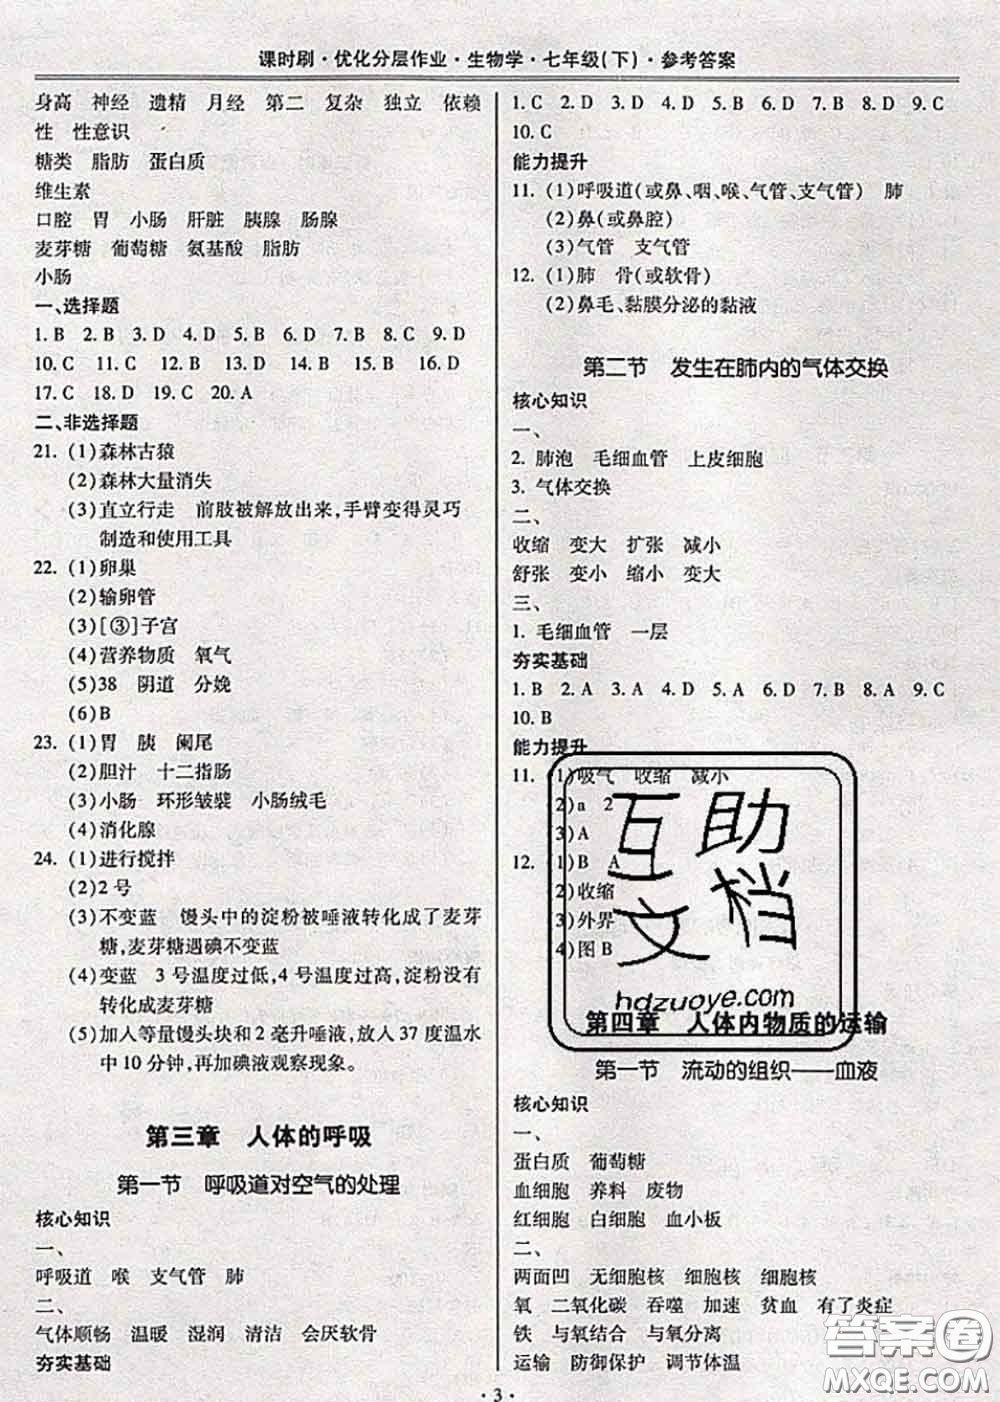 课时刷·优化分层作业·生物学·七年级(下)·参考答案
身高 神经 遗精 月经 第二 复杂 独立 依赖
性 性意识
糖类 脂肪 蛋白质
维生素
口腔 胃 小肠 肝脏 胰腺 肠腺
麦芽糖 葡萄糖 氨基酸 脂肪
小肠
一、选择题
1. B 2. B 3. D 4. D 5. D 6. B 7. B 8. C 9. D
10. C 11. C 12. B 13. D 14. B 15. B 16. D
17. C 18. D 19. C 20. A
二、非选择题
21. (1)森林古猿
(2)森林大量消失
(3)直立行走 前肢被解放出来,手臂变得灵巧
制造和使用工具
22. (1)卵巢
(2)输卵管
(3)[③]子宫
(4)营养物质 氧气
(5)38 阴道 分娩
(6)B
23. (1)胃 胰 阑尾
(2)胆汁 十二指肠
(3)小肠 环形皱襞 小肠绒毛
(4)消化腺
24. (1)进行搅拌
(2)2 号
(3)不变蓝 馒头中的淀粉被唾液转化成了麦芽
糖,麦芽糖遇碘不变蓝
(4)变蓝 3 号温度过低,4 号温度过高,淀粉没有
转化成麦芽糖
(5)加入等量馒头块和 2 毫升唾液,放入 37 度温水
中 10 分钟,再加碘液观察现象。
第三章 人体的呼吸
第一节 呼吸道对空气的处理
核心知识
一、
呼吸道 喉 支气管 肺
二、
气体顺畅 温暖 湿润 清洁 会厌软骨
夯实基础
1. C 2. D 3. D 4. D 5. B 6. D 7. B 8. D 9. C
10. C
能力提升
11. (1)呼吸道(或鼻、咽、喉、气管、支气管) 肺
(2)鼻(或鼻腔)
(3)气管 支气管
12. (1)肺 骨(或软骨)
(2)鼻毛、黏膜分泌的黏液
第二节 发生在肺内的气体交换
核心知识
一、
2. 肺泡 毛细血管 上皮细胞
3. 气体交换
二、
收缩 变大 扩张 减小
舒张 变小 缩小 变大
三、
1. 毛细血管 一层
夯实基础
1. B 2. A 3. A 4. D 5. A 6. D 7. B 8. A 9. C
10. B
能力提升
11. (1)吸气 收缩 减小
(2)a 2
(3)A
12. (1)B A
(2)收缩
(3)外界
(4)图 B
互助
文档
hdzuoye.com
第四章 人体内物质的运输
第一节 流动的组织——血液
核心知识
一、
蛋白质 葡萄糖
血细胞 养料 废物
红细胞 白细胞 血小板
二、
两面凹 无细胞核 细胞核 细胞核
氧 二氧化碳 吞噬 加速 贫血 有了炎症
铁 与氧结合 与氧分离
运输 防御保护 调节体温
答案圈
MXQE.COM
·3·